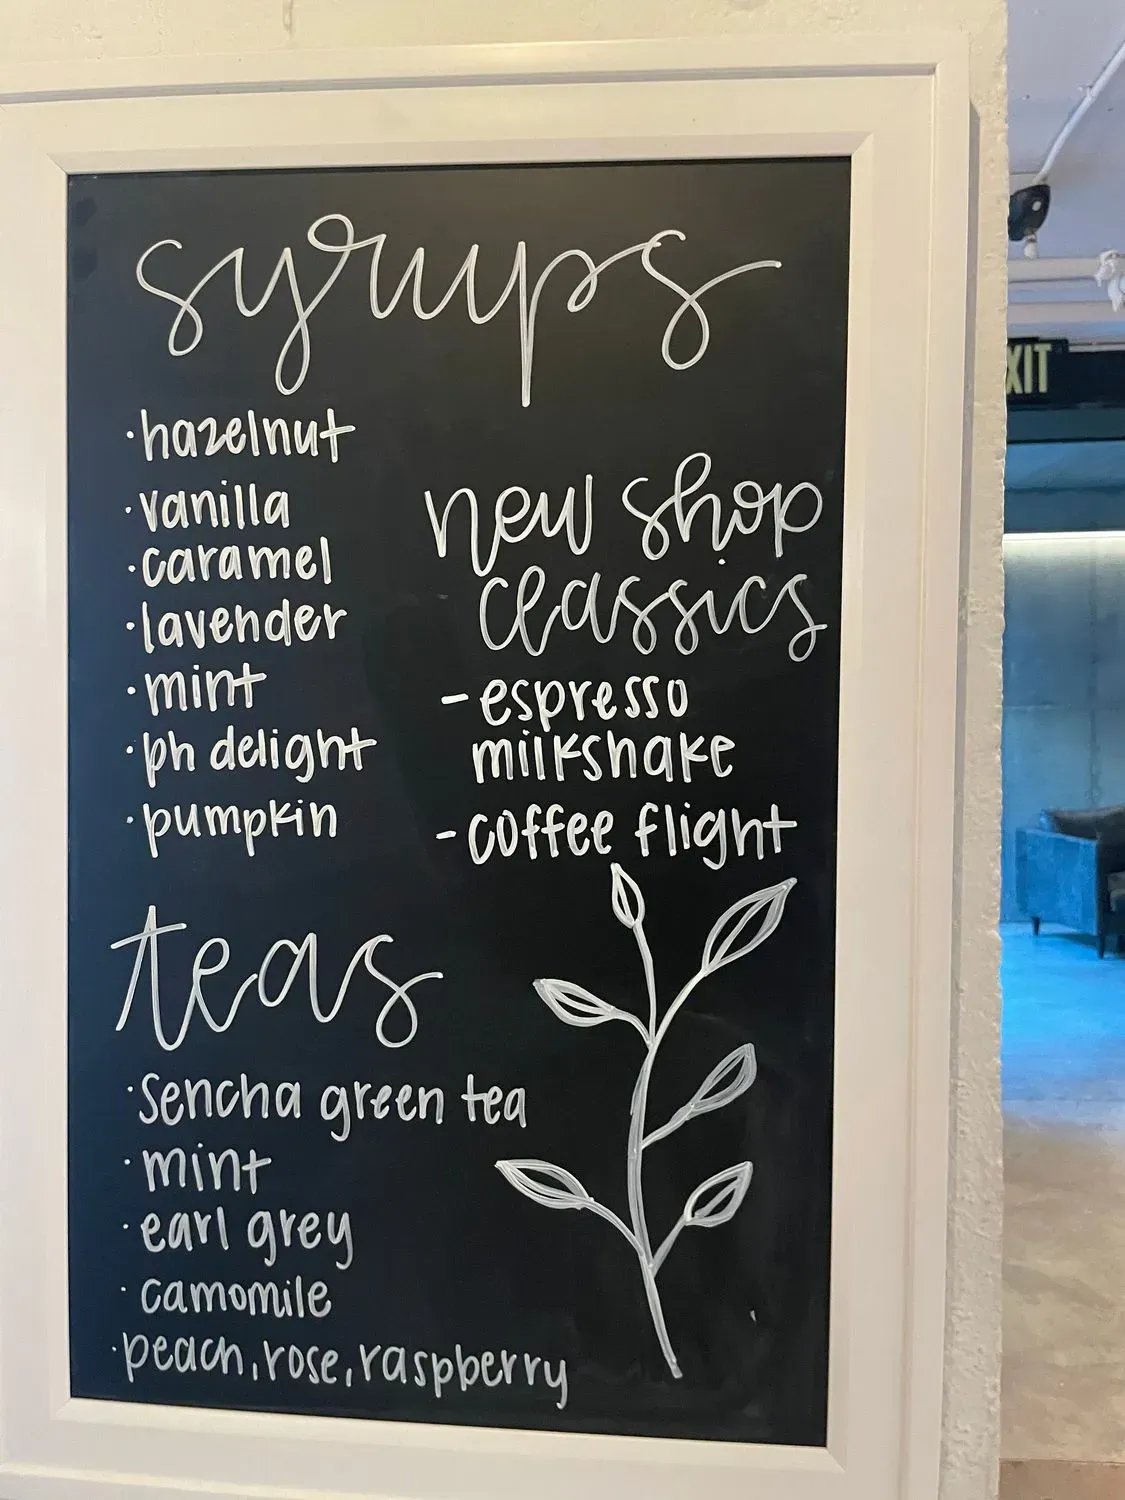 syrups
·hazelnut
·vanilla
·caramel
·lavender
·mint
·ph delight
·pumpkin
new shop
classics
-espresso
milkshake
-coffee flight
teas
·sencha green tea
·mint
·earl grey
·camomile
·peach, rose, raspberry
XIT